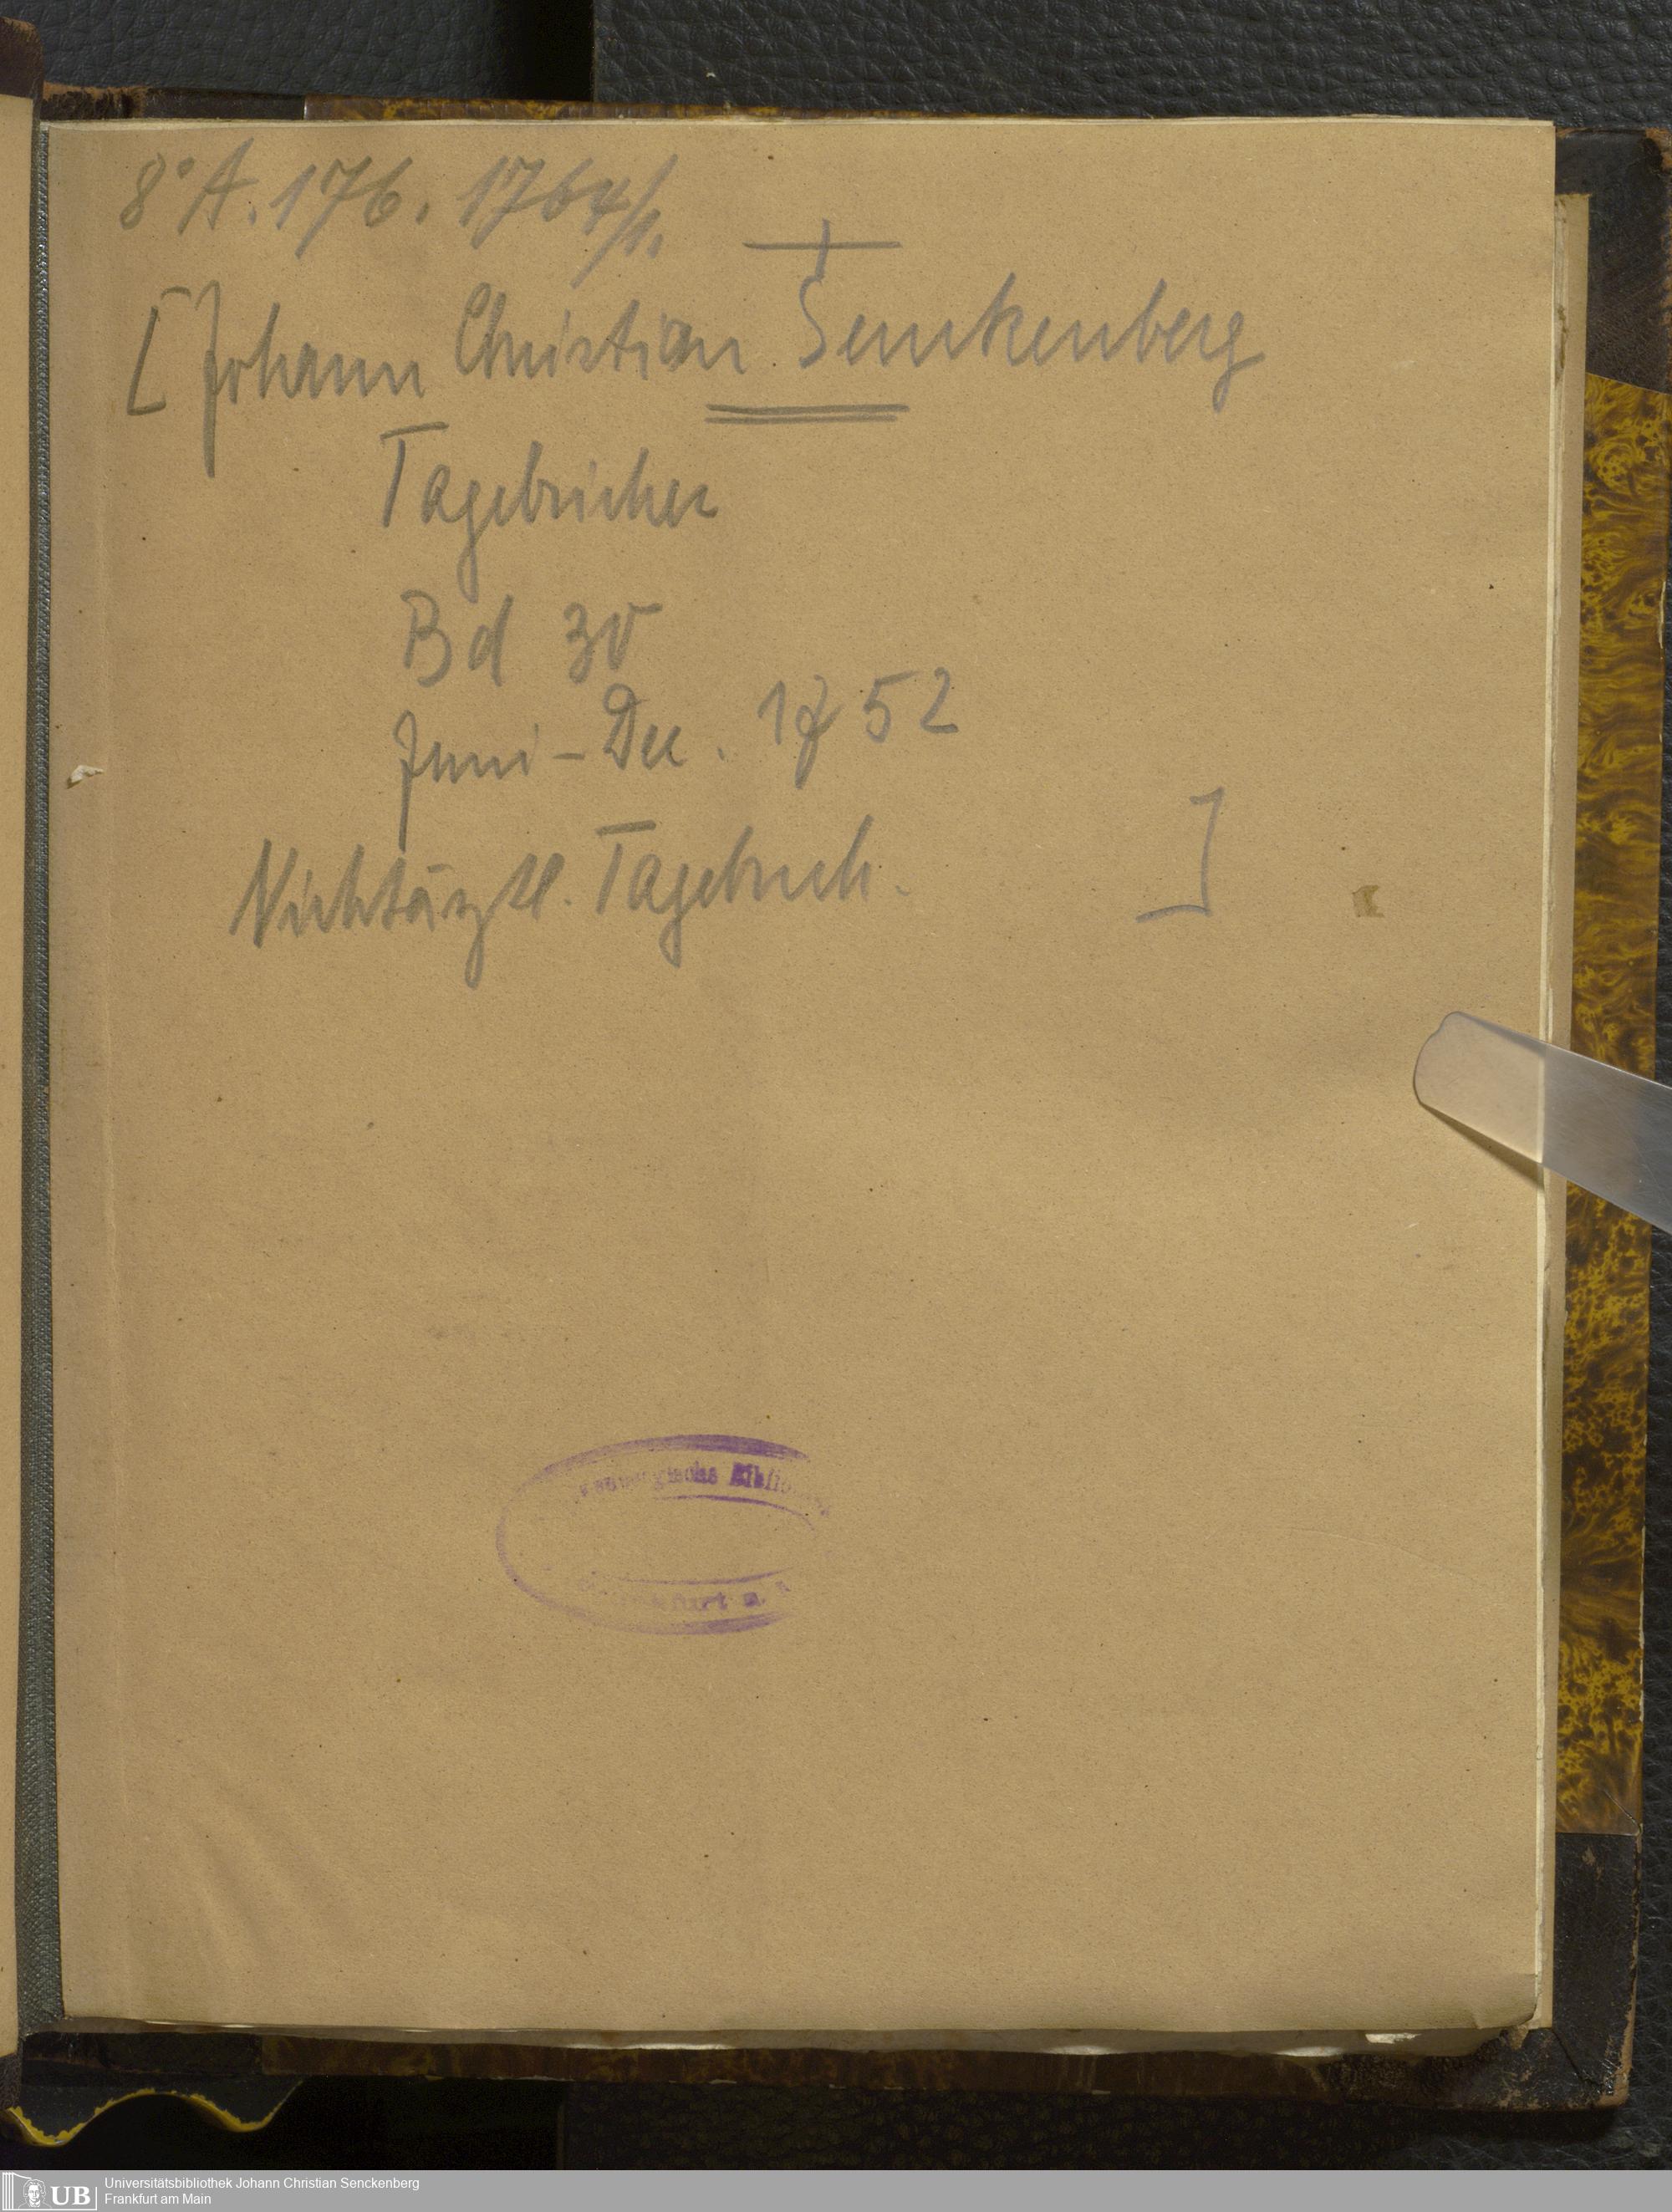 8° A. 176. 1764/1.
[Johann Christian Senckenberg
Tagebücher
Bd 30
Juni - Dec. 1752
Nichtärztl. Tagebuch. ]
Bibliothek
Frankfurt a.
UB
Universitätsbibliothek Johann Christian Senckenberg
Frankfurt am Main